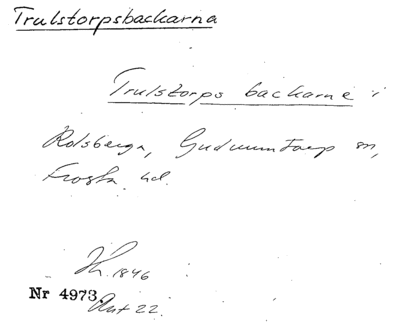 Trulstorpsbackarna
Trulstorps backarne i
Rolsberga, Gudmuntorp sn,
Frosta hd.
Hh. 1846
Nr 4973
Ant 22.